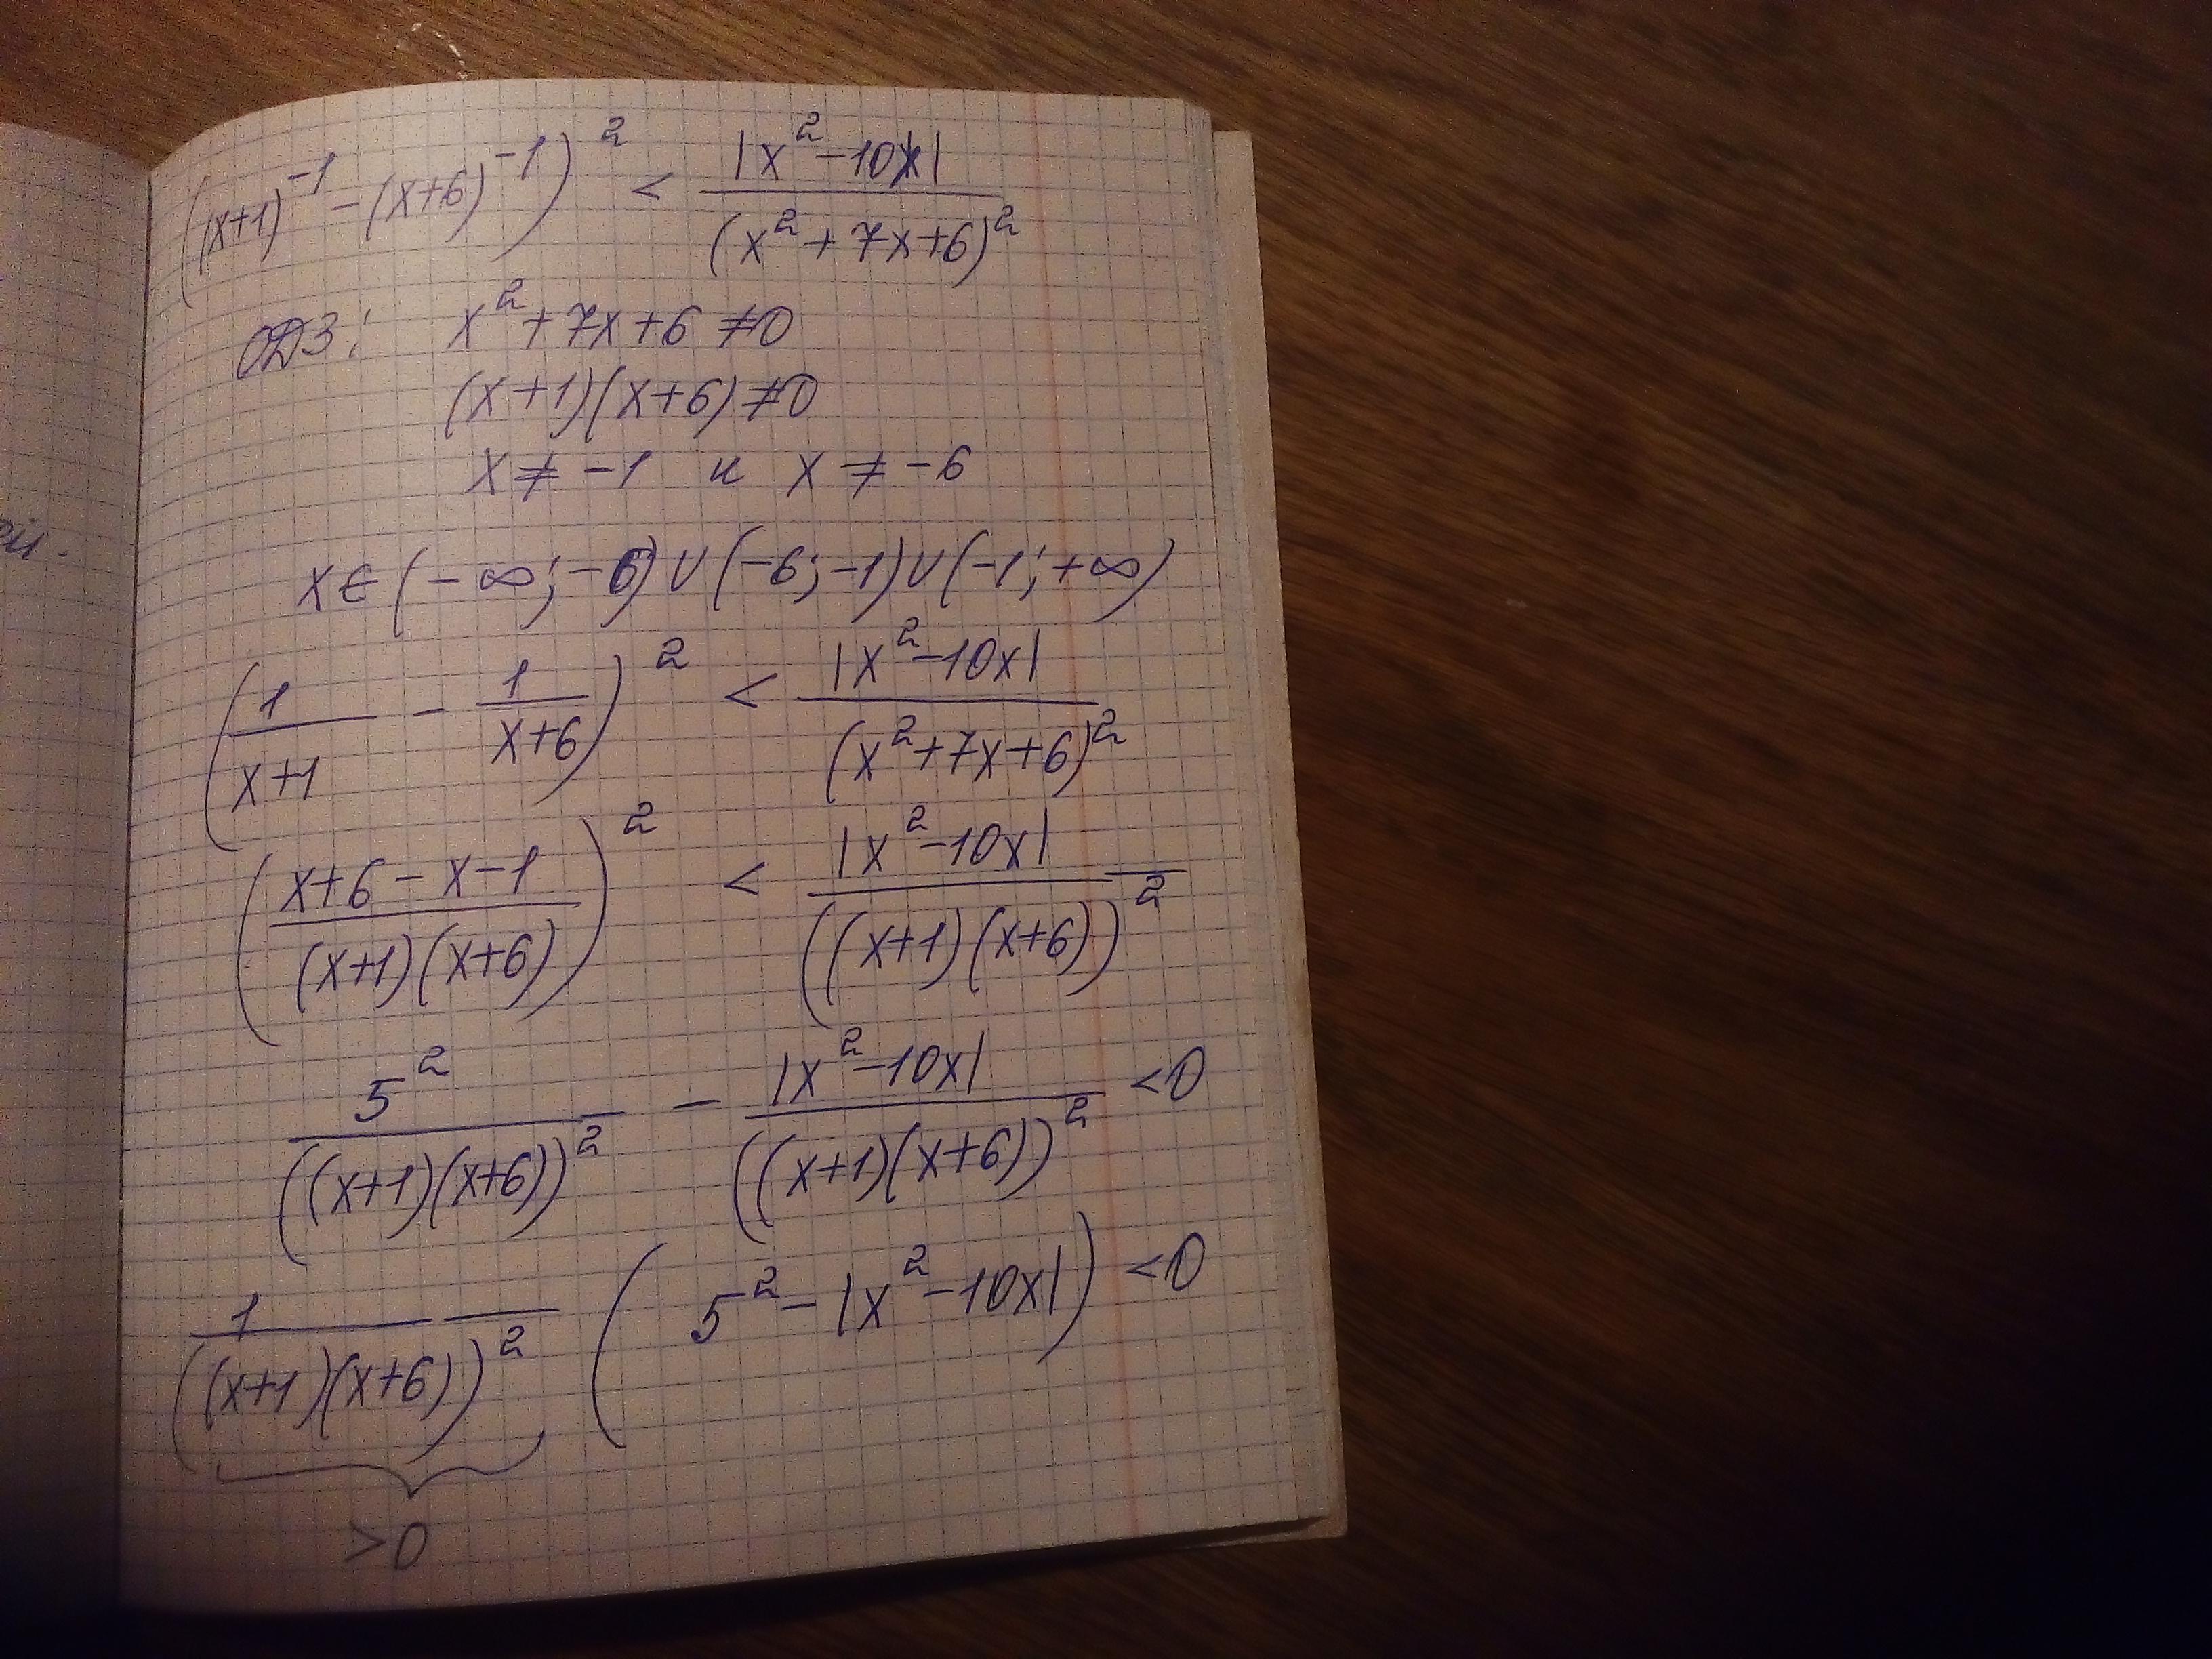 ((x+1)^-1 - (x+6)^-1)^2 < |x^2-10x| / (x^2+7x+6)^2
ОДЗ: x^2+7x+6 ≠ 0
(x+1)(x+6) ≠ 0
x ≠ -1 и x ≠ -6
x ∈ (-∞; -6) ∪ (-6; -1) ∪ (-1; +∞)
(1/(x+1) - 1/(x+6))^2 < |x^2-10x| / (x^2+7x+6)^2
((x+6-x-1) / ((x+1)(x+6)))^2 < |x^2-10x| / ((x+1)(x+6))^2
5^2 / ((x+1)(x+6))^2 - |x^2-10x| / ((x+1)(x+6))^2 < 0
1 / ((x+1)(x+6))^2 (5^2 - |x^2-10x|) < 0
>0